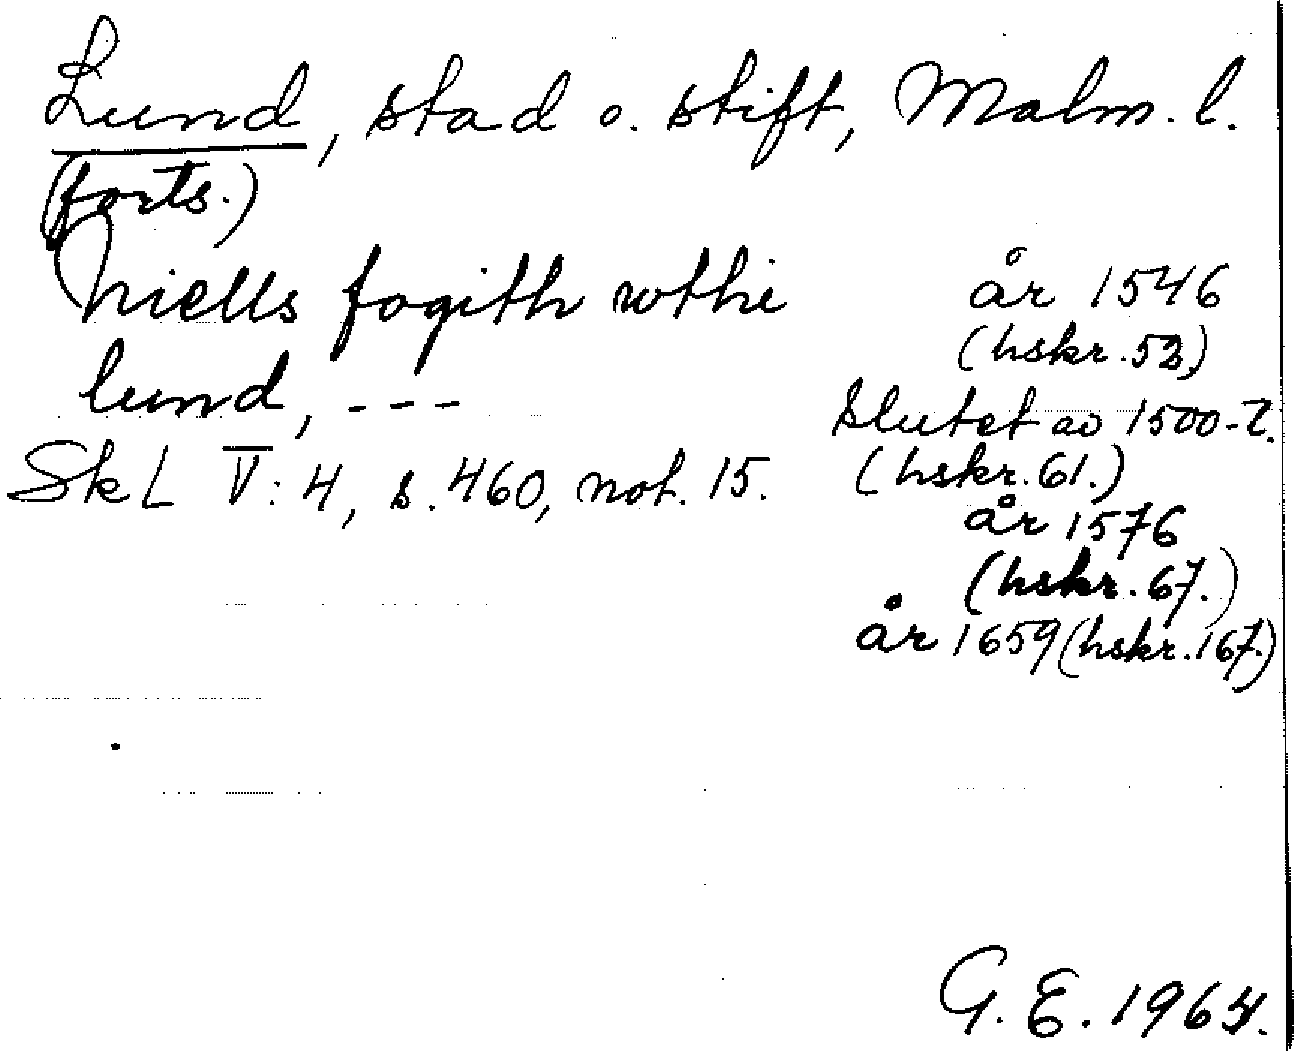 Lund, stad o. stift, Malm. l.
(forts.)
Niells fogith wthi
lund, ---
SkL V:4, s. 460, not. 15.
år 1546
(hskr. 52)
slutet av 1500-t.
(hskr. 61.)
år 1576
(hskr. 67.)
år 1659 (hskr. 167.)
G. E. 1964.